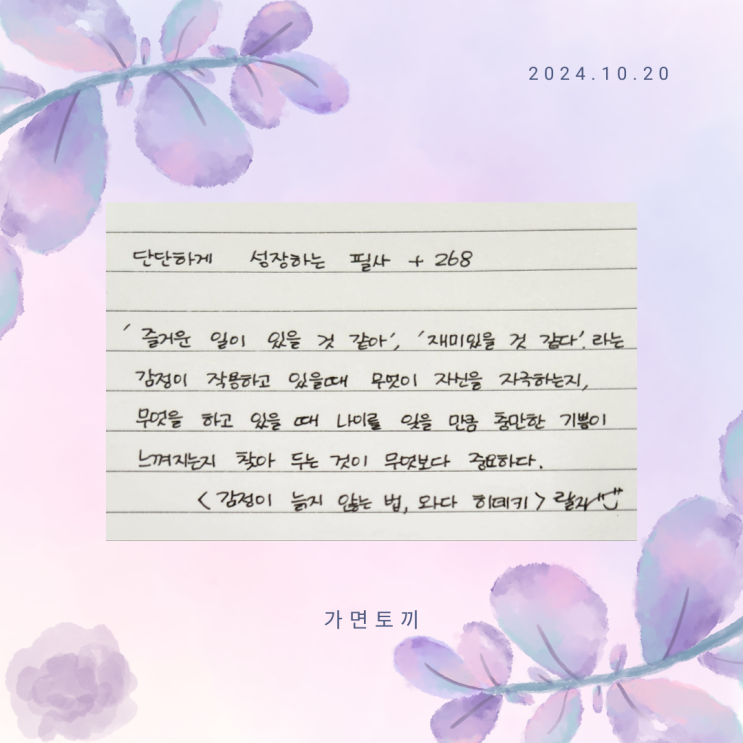 2024.10.20
단단하게 성장하는 필사 + 268
'즐거운 일이 있을 것 같아', '재미있을 것 같다'. 라는
감정이 작용하고 있을때 무엇이 자신을 자극하는지,
무엇을 하고 있을 때 나이를 잊을 만큼 충만한 기쁨이
느껴지는지 찾아 두는 것이 무엇보다 중요하다.
<감정이 늙지 않는 법, 와다 히데키>
가면토끼